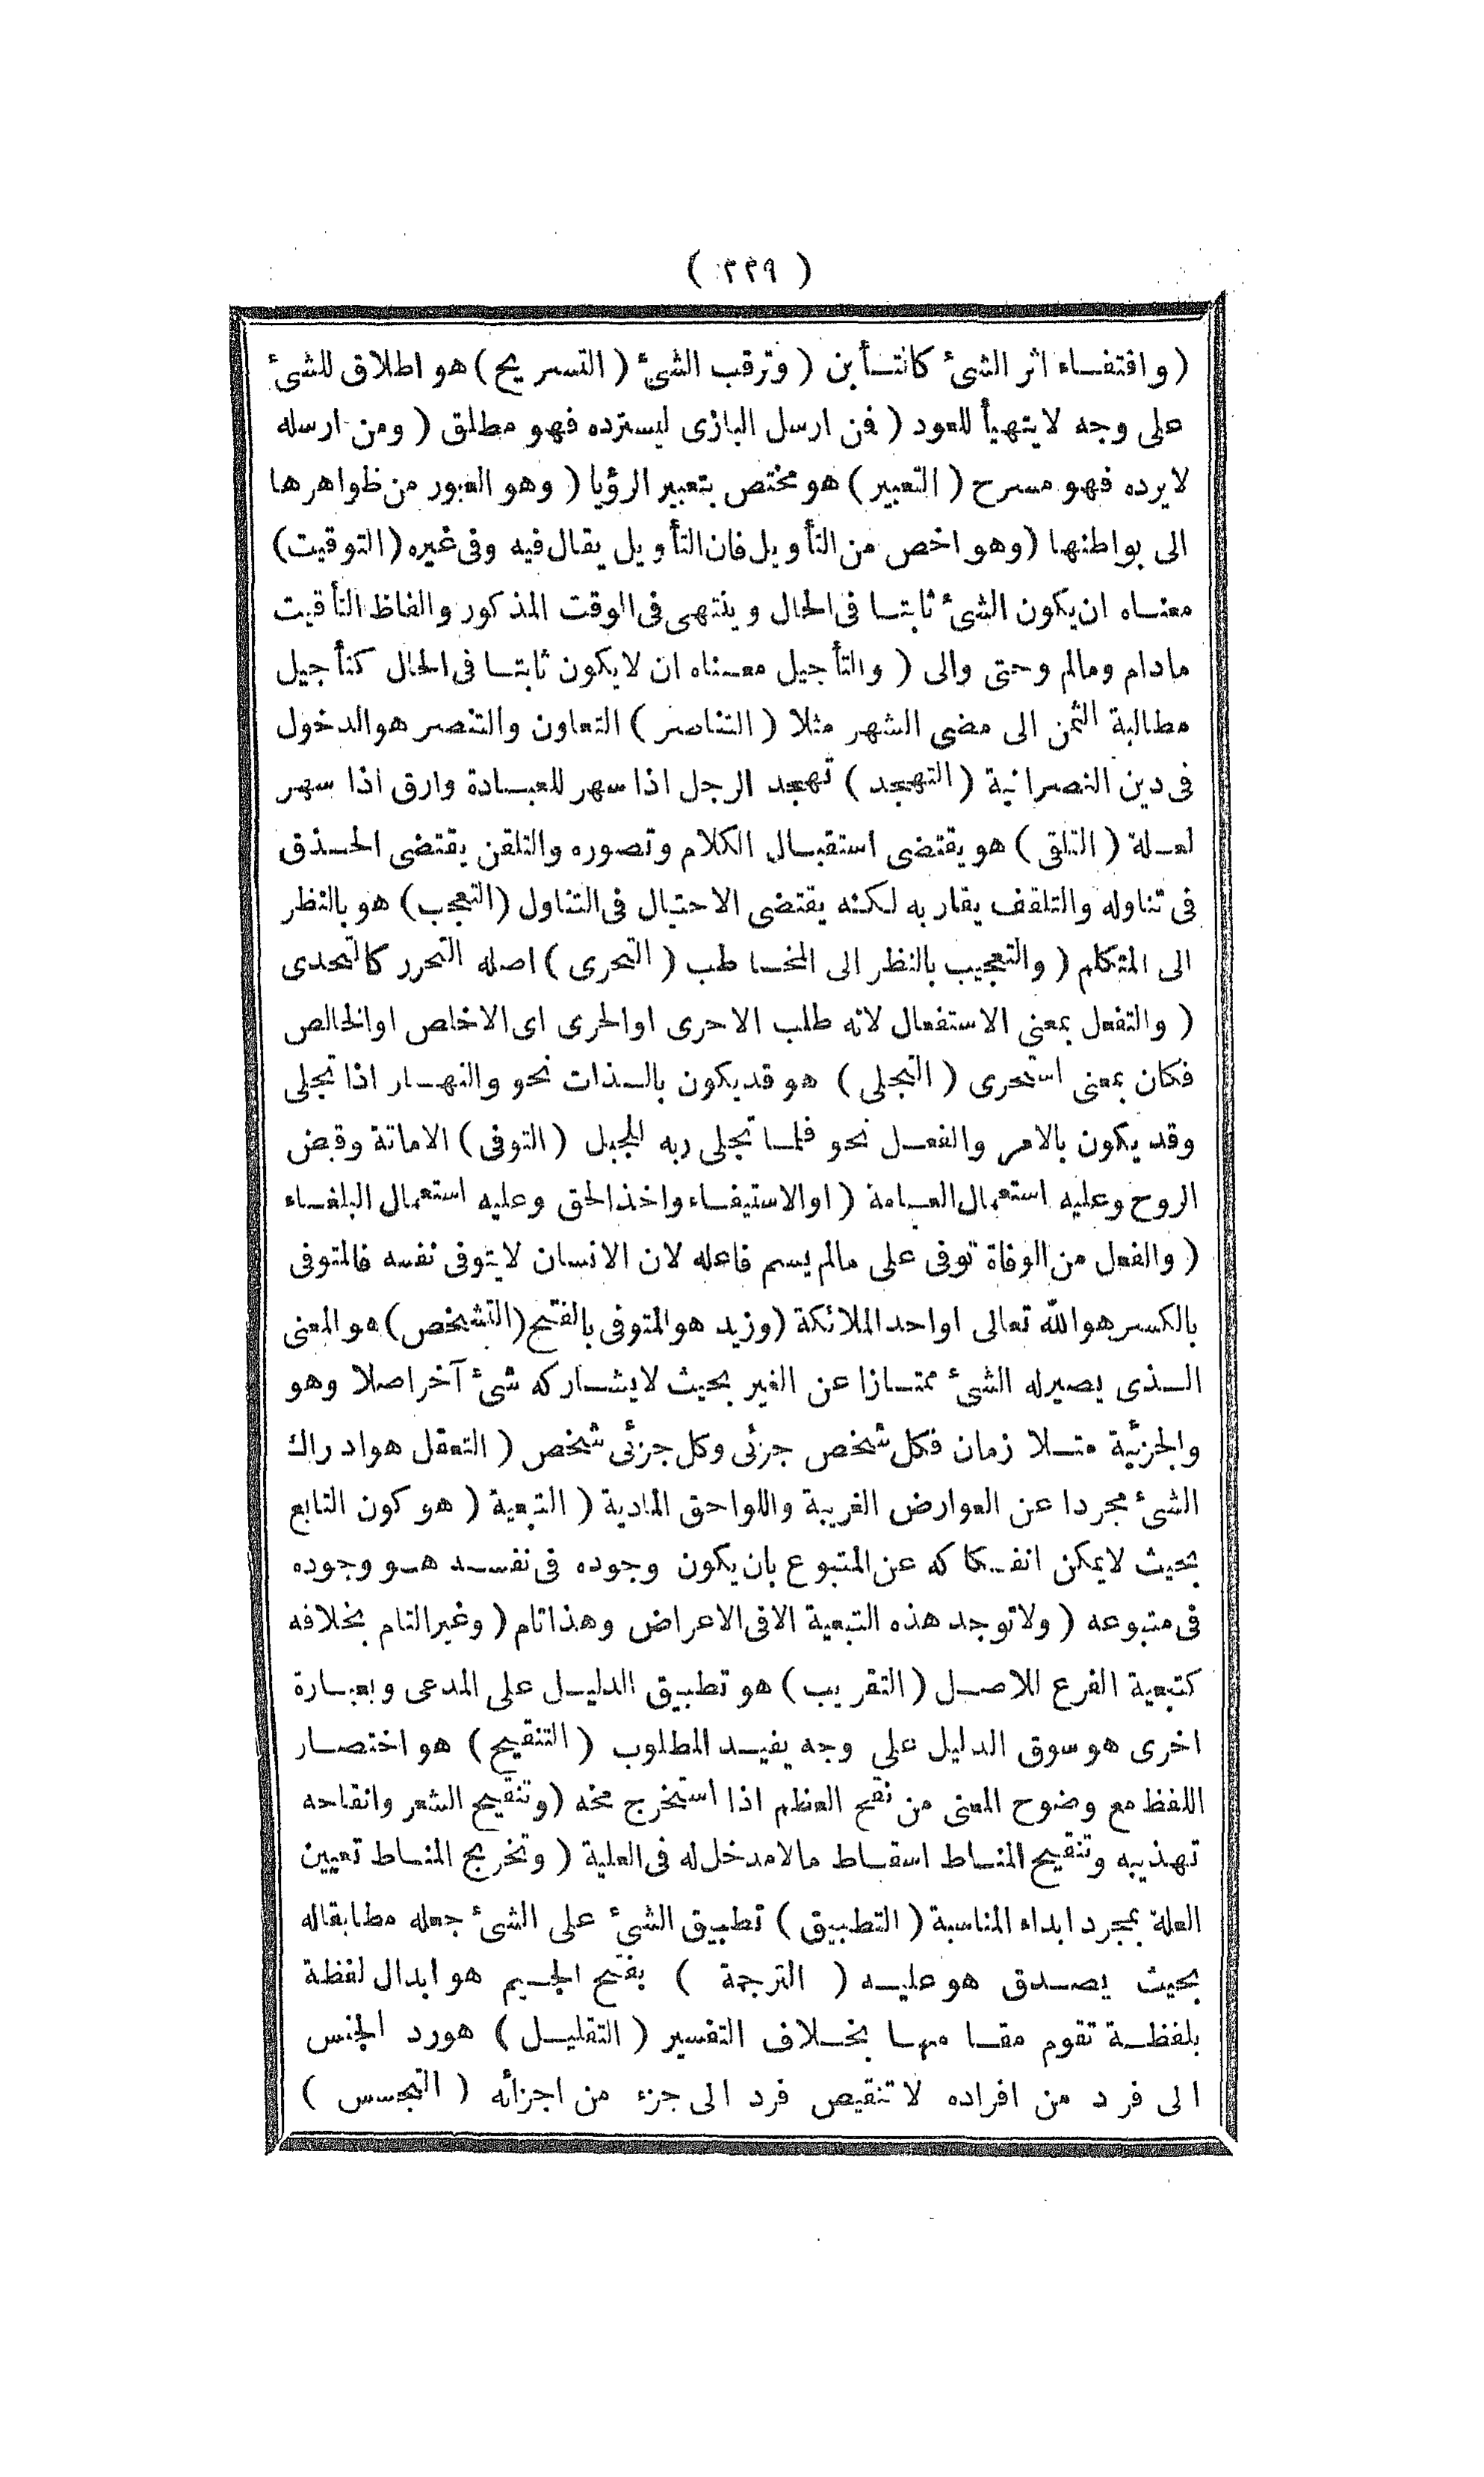 ( ٢٢٩ )
( واقتفاء اثر الشئ كالتأبن ( وترقب الشئ ( التسريح ) هو اطلاق للشئ
على وجه لا يتهيأ للعود ( فمن ارسل البازى ليسترده فهو مطلق ( ومن ارسله
لا يرده فهو مسرح ( التعبير ) هو مختص بتعبير الرؤيا ( وهو العبور من ظواهرها
الى بواطنها ( وهو اخص من التأويل فان التأويل يقال فيه وفى غيره ( التوقيت )
معناه ان يكون الشئ ثابتا فى الحال وينتهى فى الوقت المذكور والفاظ التأقيت
مادام ومالم وحتى والى ( والتأجيل معناه ان لا يكون ثابتا فى الحال كتأجيل
مطالبة الثمن الى مضى الشهر مثلا ( التناصر ) التعاون والتنصر هو الدخول
فى دين النصرانية ( التهجد ) تهجد الرجل اذا سهر للعبادة وارق اذا سهر
لعلة ( التلقى ) هو يقتضى استقبال الكلام وتصوره والتلقن يقتضى الحذق
فى تناوله والتلقف يقاربه لكنه يقتضى الاحتيال فى التناول ( التعجب ) هو بالنظر
الى المتكلم ( والتعجيب بالنظر الى المخاطب ( التحرى ) اصله التحرر كالتحدى
( والتفعل بمعنى الاستفعال لانه طلب الاحرى او الحرى اى الاخلص او الخالص
فكان بمعنى استحرى ( التجلى ) هو قد يكون بالذات نحو والنهار اذا تجلى
وقد يكون بالامر والفعل نحو فلما تجلى ربه للجبل ( التوفى ) الاماتة وقبض
الروح وعليه استعمال العامة ( او الاستيفاء واخذ الحق وعليه استعمال البلغاء
( والفعل من الوفاة توفى على مالم يسم فاعله لان الانسان لا يتوفى نفسه فالمتوفى
بالكسر هو الله تعالى او احد الملائكة ( وزيد هو المتوفى بالفتح ( التشخص ) هو المعنى
الذى يصير له الشئ ممتازا عن الغير بحيث لا يشاركه شئ آخر اصلا وهو
والجزئية متلا زمان فكل شخص جزئى وكل جزئى شخص ( التعقل هو ادراك
الشئ مجردا عن العوارض الغريبة واللواحق المادية ( التبعية ( هو كون التابع
بحيث لا يمكن انفكاكه عن المتبوع بان يكون وجوده فى نفسه هو وجوده
فى متبوعه ( ولا توجد هذه التبعية الا فى الاعراض وهذا تام ( وغير التام بخلافه
كتبعية الفرع للاصل ( التقريب ) هو تطبيق الدليل على المدعى وبعبارة
اخرى هو سوق الدليل على وجه يفيد المطلوب ( التنقيح ) هو اختصار
اللفظ مع وضوح المعنى من نقح العظم اذا استخرج مخه ( وتنقيح الشعر وانقاحه
تهذيبه وتنقيح المناط اسقاط مالا مدخل له فى العلية ( وتخريج المناط تعيين
العلة بمجرد ابداء المناسبة ( التطبيق ) تطبيق الشئ على الشئ جعله مطابقا له
بحيث يصدق هو عليه ( الترجمة ) بفتح الجيم هو ابدال لفظة
بلفظة تقوم مقامها بخلاف التفسير ( التقليل ) هو رد الجنس
الى فرد من افراده لا تنقيص فرد الى جزء من اجزائه ( التجسس )